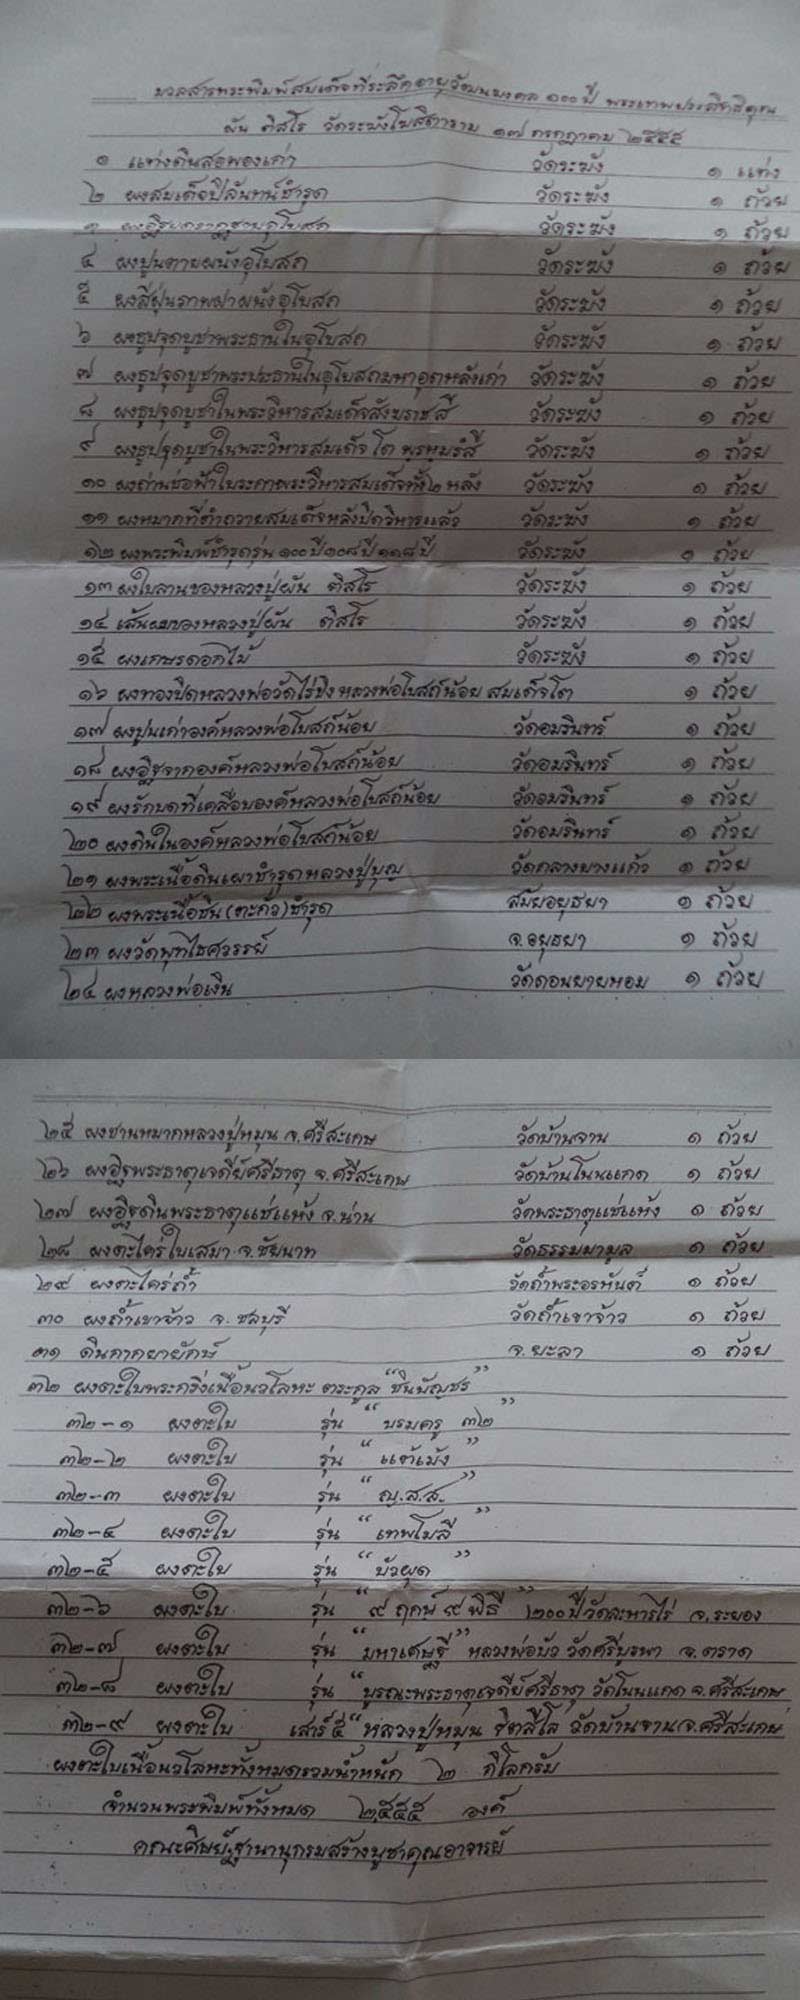 มวลสารพระพิมพ์สมเด็จที่ระลึกอายุวัฒนมงคล ๑๐๐ ปี พระเทพประสิทธิคุณ
ผัน ติสโร วัดระฆังโฆสิตาราม ๑๗ กรกฎาคม ๒๕๕๕
๑ แท่งดินสอพองเก่า วัดระฆัง ๑ แท่ง
๒ ผงสมเด็จปิลันทน์ชำรุด วัดระฆัง ๑ ถ้วย
๓ วัดระฆัง ๑ ถ้วย
๔ ผงปูนฉาบผนังอุโบสถ วัดระฆัง ๑ ถ้วย
๕ ผงสีฝุ่นภาพฝาผนังอุโบสถ วัดระฆัง ๑ ถ้วย
๖ ผงธูปจุดบูชาพระธานในอุโบสถ วัดระฆัง ๑ ถ้วย
๗ ผงธูปจุดบูชาพระประธานในอุโบสถมหาอุตหลังเก่า วัดระฆัง ๑ ถ้วย
๘ ผงธูปจุดบูชาในพระวิหารสมเด็จสังฆราชสี วัดระฆัง ๑ ถ้วย
๙ ผงธูปจุดบูชาในพระวิหารสมเด็จโต พรหมรังสี วัดระฆัง ๑ ถ้วย
๑๐ ผงถ่านช่อฟ้าใบระกาพระวิหารสมเด็จทั้ง๒ หลัง วัดระฆัง ๑ ถ้วย
๑๑ ผงหมากที่ตำถวายสมเด็จหลังปิดวิหารแล้ว วัดระฆัง ๑ ถ้วย
๑๒ ผงพระพิมพ์ชำรุดรุ่น ๑๐๐ ปี ๑๐๘ ปี ๑๑๘ ปี วัดระฆัง ๑ ถ้วย
๑๓ ผงใบลานของหลวงปู่ผัน ติสโร วัดระฆัง ๑ ถ้วย
๑๔ เส้นผมของหลวงปู่ผัน ติสโร วัดระฆัง ๑ ถ้วย
๑๕ ผงเกษรดอกไม้ วัดระฆัง ๑ ถ้วย
๑๖ ผงทองปิดหลวงพ่อวัดไร่ขิง หลวงพ่อโบสถ์น้อย สมเด็จโต ๑ ถ้วย
๑๗ ผงปูนเก่าองค์หลวงพ่อโบสถ์น้อย วัดอมรินทร์ ๑ ถ้วย
๑๘ ผงอิฐจากองค์หลวงพ่อโบสถ์น้อย วัดอมรินทร์ ๑ ถ้วย
๑๙ ผงรักบดที่เคลือบองค์หลวงพ่อโบสถ์น้อย วัดอมรินทร์ ๑ ถ้วย
๒๐ ผงดินในองค์หลวงพ่อโบสถ์น้อย วัดอมรินทร์ ๑ ถ้วย
๒๑ ผงพระเนื้อดินเผาชำรุดหลวงปู่บุญ วัดกลางบางแก้ว ๑ ถ้วย
๒๒ ผงพระเนื้อชิน (ตะกั่ว) ชำรุด สมัยอยุธยา ๑ ถ้วย
๒๓ ผงวัดพุทไธศวรรย์ จ.อยุธยา ๑ ถ้วย
๒๔ ผงหลวงพ่อเงิน วัดดอนยายหอม ๑ ถ้วย
๒๕ ผงชานหมากหลวงปู่หมุน จ.ศรีสะเกษ วัดบ้านจาน ๑ ถ้วย
๒๖ ผงอิฐพระธาตุเจดีย์ศรีธาตุ จ.ศรีสะเกษ วัดบ้านโนนแกด ๑ ถ้วย
๒๗ ผงอิฐดินพระธาตุแช่แห้ง จ.น่าน วัดพระธาตุแช่แห้ง ๑ ถ้วย
๒๘ ผงตะไคร่ใบเสมา จ.ชัยนาท วัดธรรมามูล ๑ ถ้วย
๒๙ ผงตะไคร่ถ้ำ วัดถ้ำพระอรหันต์ ๑ ถ้วย
๓๐ ผงถ้ำเขาจ้าว จ.ชลบุรี วัดถ้ำเขาจ้าว ๑ ถ้วย
๓๑ ดินกากยายักษ์ จ.ยะลา ๑ ถ้วย
๓๒ ผงตะใบพระกริ่งเนื้อนวโลหะ ตระกูล "ชินบัญชร"
๓๒-๑ ผงตะใบ รุ่น "บรมครู ๓๒"
๓๒-๒ ผงตะใบ รุ่น "แซ่เม้ง"
๓๒-๓ ผงตะใบ รุ่น "ญ.ส.ส."
๓๒-๔ ผงตะใบ รุ่น "เทพโมลี"
๓๒-๕ ผงตะใบ รุ่น "บัวผุด"
๓๒-๖ ผงตะใบ รุ่น "๙ ฤกษ์ ๙ พิธี" ๒๐๐ ปีวัดละหารไร่ จ.ระยอง
๓๒-๗ ผงตะใบ รุ่น "มหาเศรษฐี" หลวงพ่อบัว วัดศรีบูรพา จ.ตราด
๓๒-๘ ผงตะใบ รุ่น "บูรณะพระธาตุเจดีย์ศรีธาตุ วัดโนนแกด จ.ศรีสะเกษ
๓๒-๙ ผงตะใบ เสาร์ ๕ "หลวงปู่หมุน ฐิตสีโล วัดบ้านจาน จ.ศรีสะเกษ
ผงตะใบเนื้อนวโลหะทั้งหมดรวมน้ำหนัก ๒ กิโลกรัม
จำนวนพระพิมพ์ทั้งหมด ๒,๕๕๕ องค์
คณะศิษย์,ฐานานุกรมสร้างบูชาคุณอาจารย์